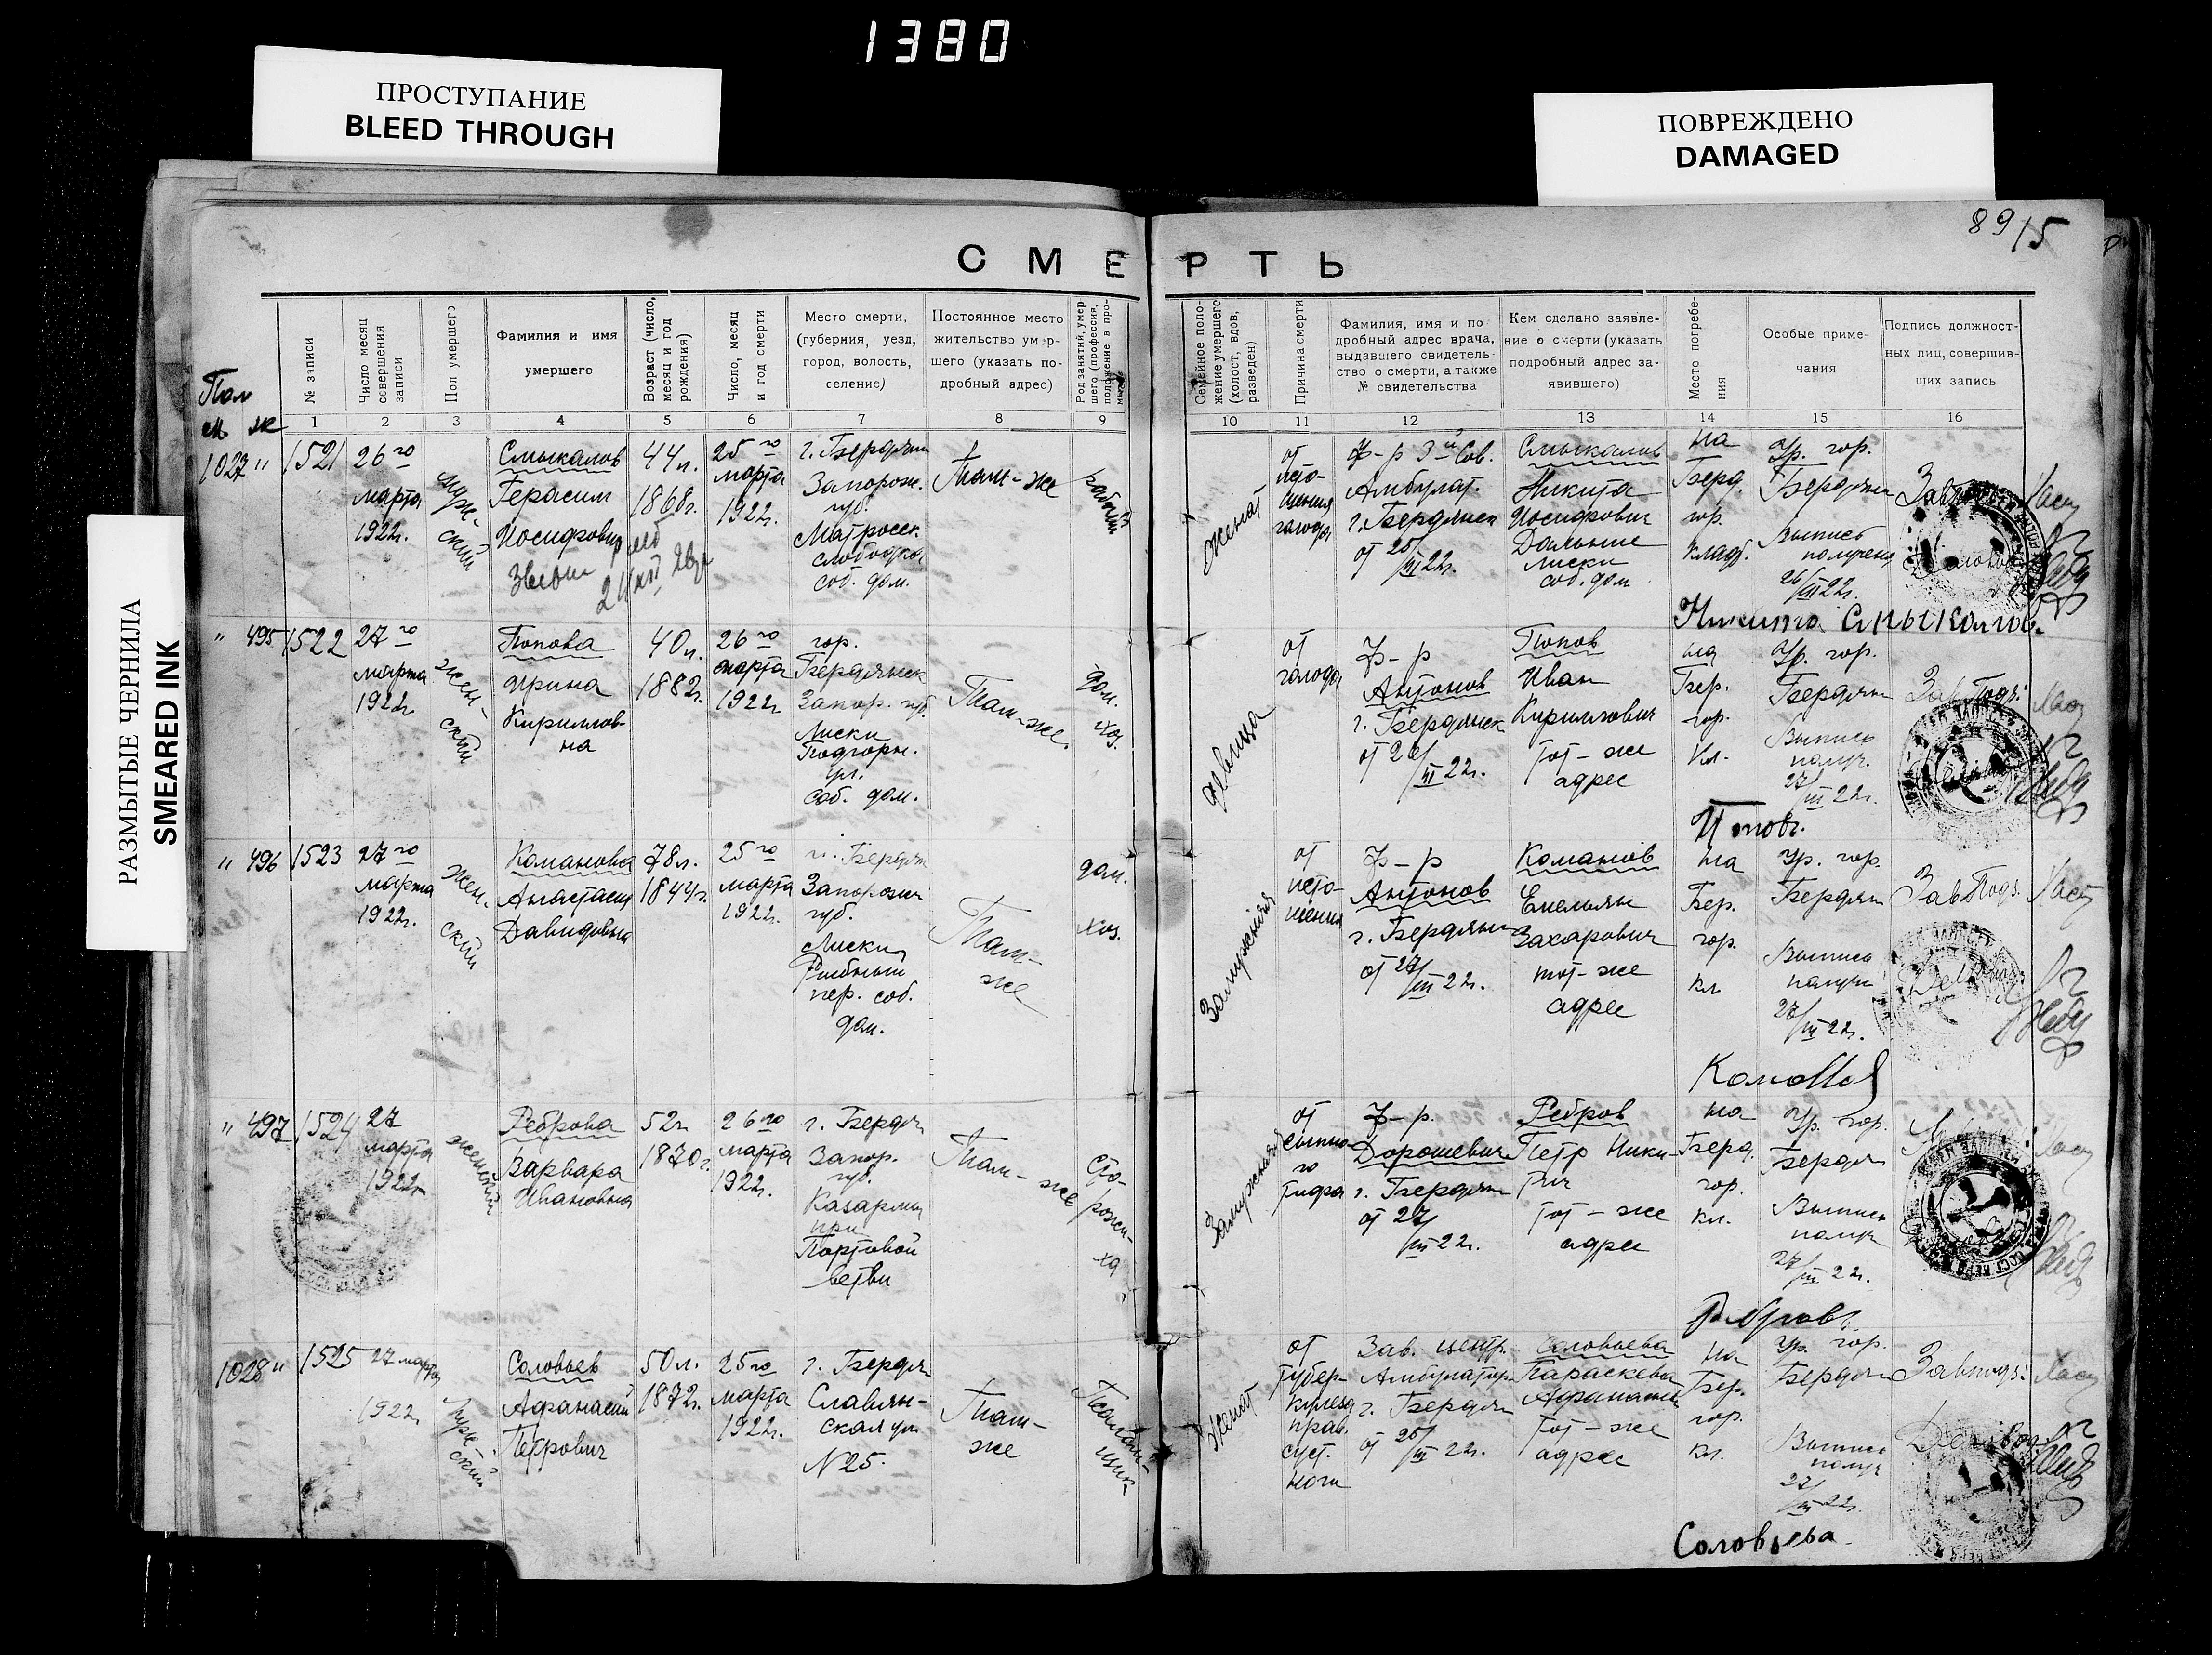 1380
ПРОСТУПАНИЕ
BLEED THROUGH
ПОВРЕЖДЕНО
DAMAGED
РАЗМЫТЫЕ ЧЕРНИЛА
SMEARED INK
89/15
СМЕРТЬ
Пол
м ж
№ записи
Число месяц совершения записи
Пол умершего
Фамилия и имя
умершего
Возраст (число, месяц и год рождения)
Число, месяц и год смерти
Место смерти,
(губерния, уезд,
город, волость,
селение)
Постоянное место
жительство умер-
шего (указать по-
дробный адрес)
Род занятий, умер
шего (профессия,
положение в про-
Семейное поло-
жение умершего
(холост, вдов,
разведен)
Причина смерти
Фамилия, имя и по
дробный адрес врача,
выдавшего свидетель-
ство о смерти, а также
№ свидетельства
Кем сделано заявле-
ние о смерти (указать
подробный адрес за-
явившего)
Место погребе-
ния
Особые приме-
чания
Подпись должност-
ных лиц, совершив-
ших запись
1 2 3 4 5 6 7 8 9 10 11 12 13 14 15 16
1027 "
1521
26го
марта
1922г.
муж-
ской
Смыкалов
Герасим
Иосифович
44 л.
1868г.
25го
марта
1922г.
г. Бердян
Запорож.
губ.
Матросск.
слободка
соб. дом.
Там-же
рабочий
женат
от
исто-
щения
голода
Ф-р 3й Сов.
Амбулат.
г. Бердянск
от 25/III 22г.
Смыкалов
Никита
Иосифович
Дальние
Лиски
соб. дом
на
Берд.
гор.
кладб.
Ур. гор.
Бердян
Выпись
получена
26/III 22г.
Никита Смыкалов.
" 495
1522
27го
марта
1922г.
жен-
ский
Попова
Ирина
Кириллов-
на
40 л.
1882г.
26го
марта
1922г
гор.
Бердянск
Запор. губ.
Лиски
Подгорн.
ул.
соб. дом.
Там-же.
дом.
хоз.
девица
от
голода
Ф-р
Антонов
г. Бердянск
от 26/III 22г.
Попов
Иван
Кириллович
тот-же
адрес
на
Бер.
гор.
кл.
Ур. гор.
Бердян
Выпись
получ.
27/III 22г.
" 496
1523
27го
марта
1922г.
жен-
ский
Команова
Анастасия
Давидовна
78 л.
1844г.
25го
марта
1922г.
г. Бердян
Запорожск
губ.
Лиски
Рыбный
пер. соб.
дом.
Там-
же
дом.
хоз.
Замужняя
от
исто-
щения
Ф-р
Антонов
г. Бердянск
от 27/III 22г.
Команов
Емельян
Захарович
тот-же
адрес
на
Бер.
гор.
кл
Ур. гор.
Бердян
Выпись
получ
27/III 22г.
" 497
1524
27
марта
1922г
женский
Реброва
Варвара
Ивановна
52г.
1870г.
26го
марта
1922г.
г. Бердян
Запор.
губ.
Казармы
при
Портовой
ветви
Там-же
Сто-
рожи-
ха
Замужняя
от
сыпно-
го
тифа
Ф-р.
Дорошевич
г. Бердян
от 27/III 22г.
Ребров
Петр Ники-
тич
тот-же
адрес
на
Берд.
гор.
кл.
Ур. гор.
Бердян
Выпись
получ
27/III 22г.
Ребров
1028 "
1525
27 марта
1922г
муж-
ский
Соловьев
Афанасий
Петрович
50 л.
1872г.
25го
марта
1922г.
г. Бердян
Славян-
ская ул
№25.
Там-
же
женат
от
тубер-
кулеза
прав.
суст.
ноги
Зав. центр.
Амбулатор
г. Бердян
от 25/III 22г.
Соловьева
Параскева
Афанасьев
тот-же
адрес
на
Бер.
гор.
кл.
Ур. гор.
Бердян
Выпись
получ
27/III 22г.
Соловьева